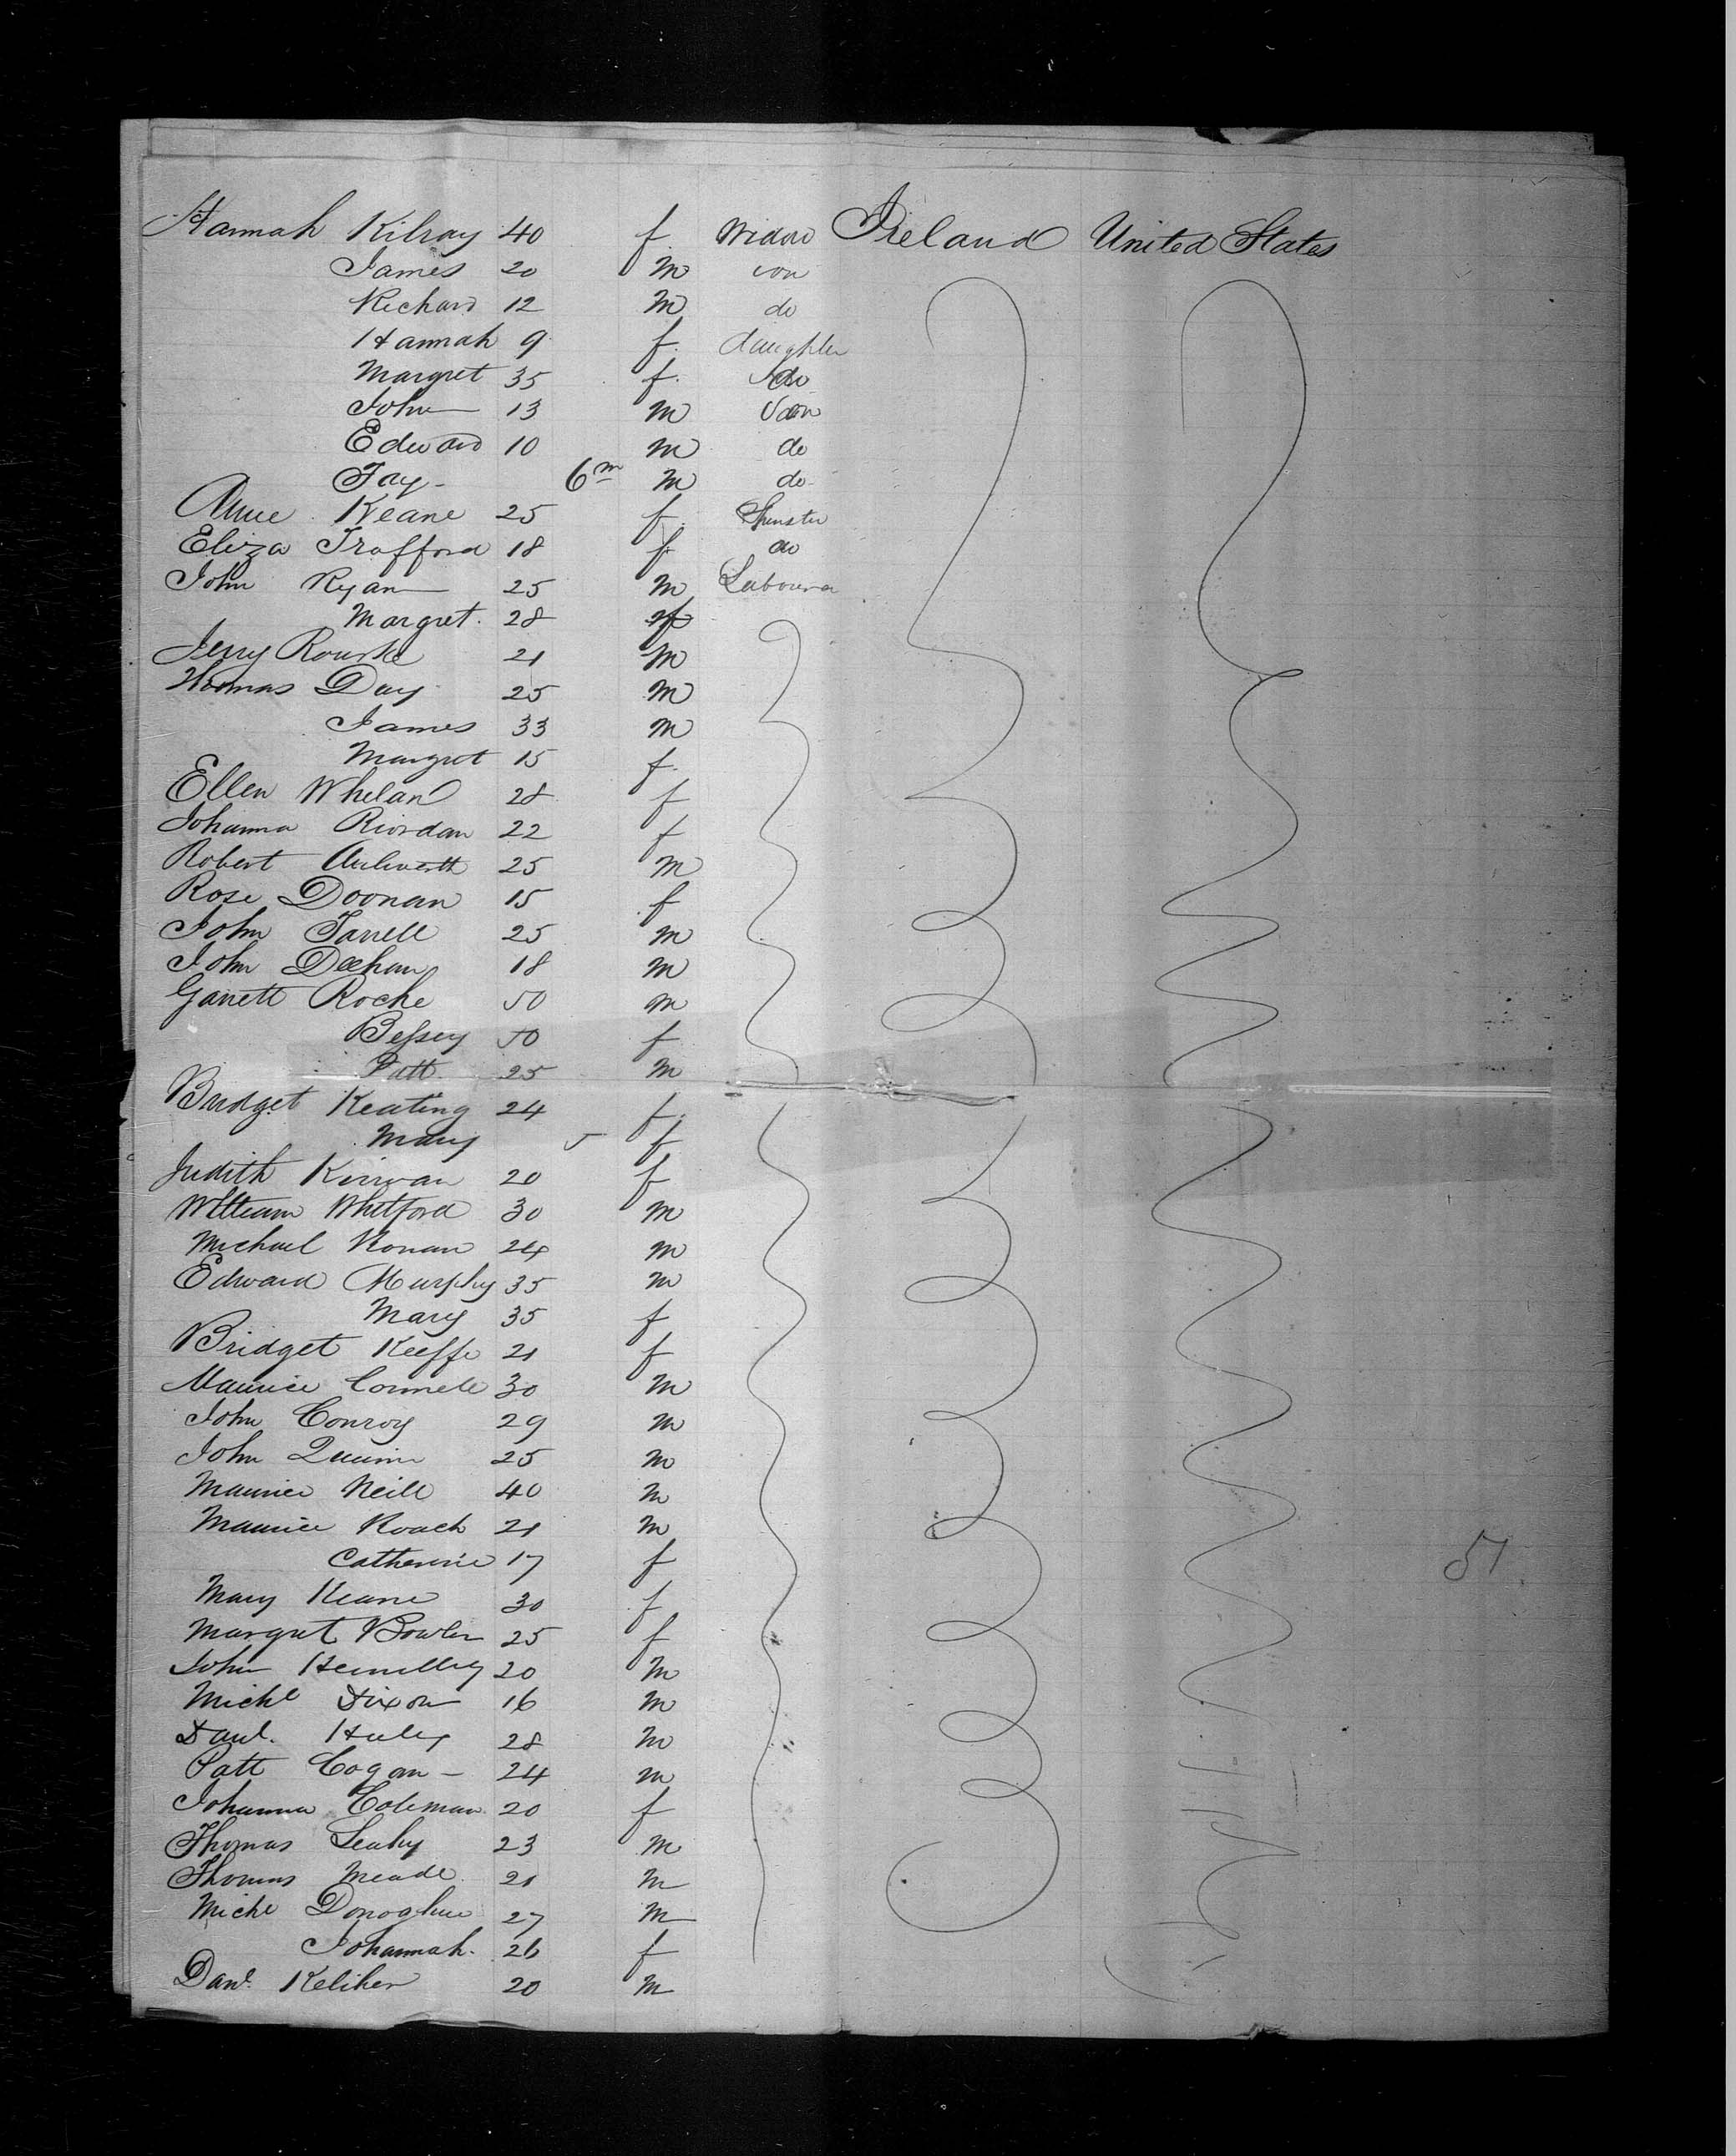 Hannah Kilroy 40 f. Widow Ireland United States
James 20 m son
Richard 12 m do
Hannah 9 f. daughter
Margret 35 f. do
John 13 m Son
Edward 10 m do
6m m do
Anne Keane 25 f. Spinster
Eliza Trafford 18 f. do
John Ryan 25 m Labourer
Margret. 28 f
Jerry Rourke 21 m
Thomas Day 25 m
James 33 m
Margret 15 f.
Ellen Whelan 28 f
Johanna Riordan 22 f
Robert 25 m
Rose Doonan 15 f
John Farrell 25 m
John Deehan 18 m
Garrett Roche 50 m
Bessey 50 f
Patt 25 m
Bridget Keating 24 f.
Mary 5 f
Judith Kirwan 20 f
William Whitford 30 m
Michael Ronan 24 m
Edward Murphy 35 m
Mary 35 f
Bridget Keeffe 21 f
Maurice Connell 30 m
John Conroy 29 m
John Quinn 25 m
Maurice Neill 40 m
Maurice Roach 21 m
Catherine 17 f
51
Mary Keane 30 f
Margret Bowler 25 f
John 20 m
Michl Dixon 16 m
Danl. Haley 28 m
Patt Cogan 24 m
Johanna Coleman 20 f
Thomas Leahy 23 m
Thomas Meade 21 m
Michl Donoghue 27 m
Johannah. 26 f
Danl. Keliher 20 m